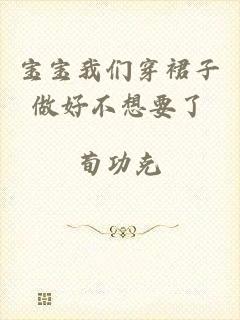 宝宝我们穿裙子
做好不想要了
荀功克